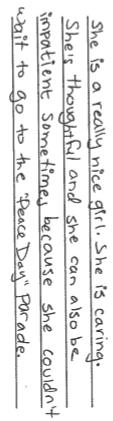 She is a really nice girl. She is caring.
She's thoughtful and she can also be
impatient sometimes because she couldn't
wait to go to the "Peace Day" parade.